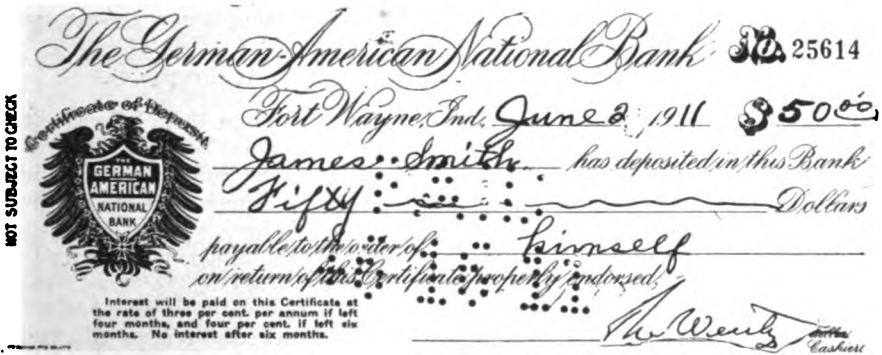 The German-American National Bank No. 25614
Fort Wayne, Ind. June 2 1911 $50.00
Certificate of Deposit
THE
GERMAN
AMERICAN
NATIONAL
BANK
NOT SUBJECT TO CHECK
James Smith has deposited in this Bank
Fifty Dollars
payable to the order of himself
on return of this Certificate properly endorsed.
Interest will be paid on this Certificate at
the rate of three per cent. per annum if left
four months, and four per cent. if left six
months. No interest after six months.
Cashier